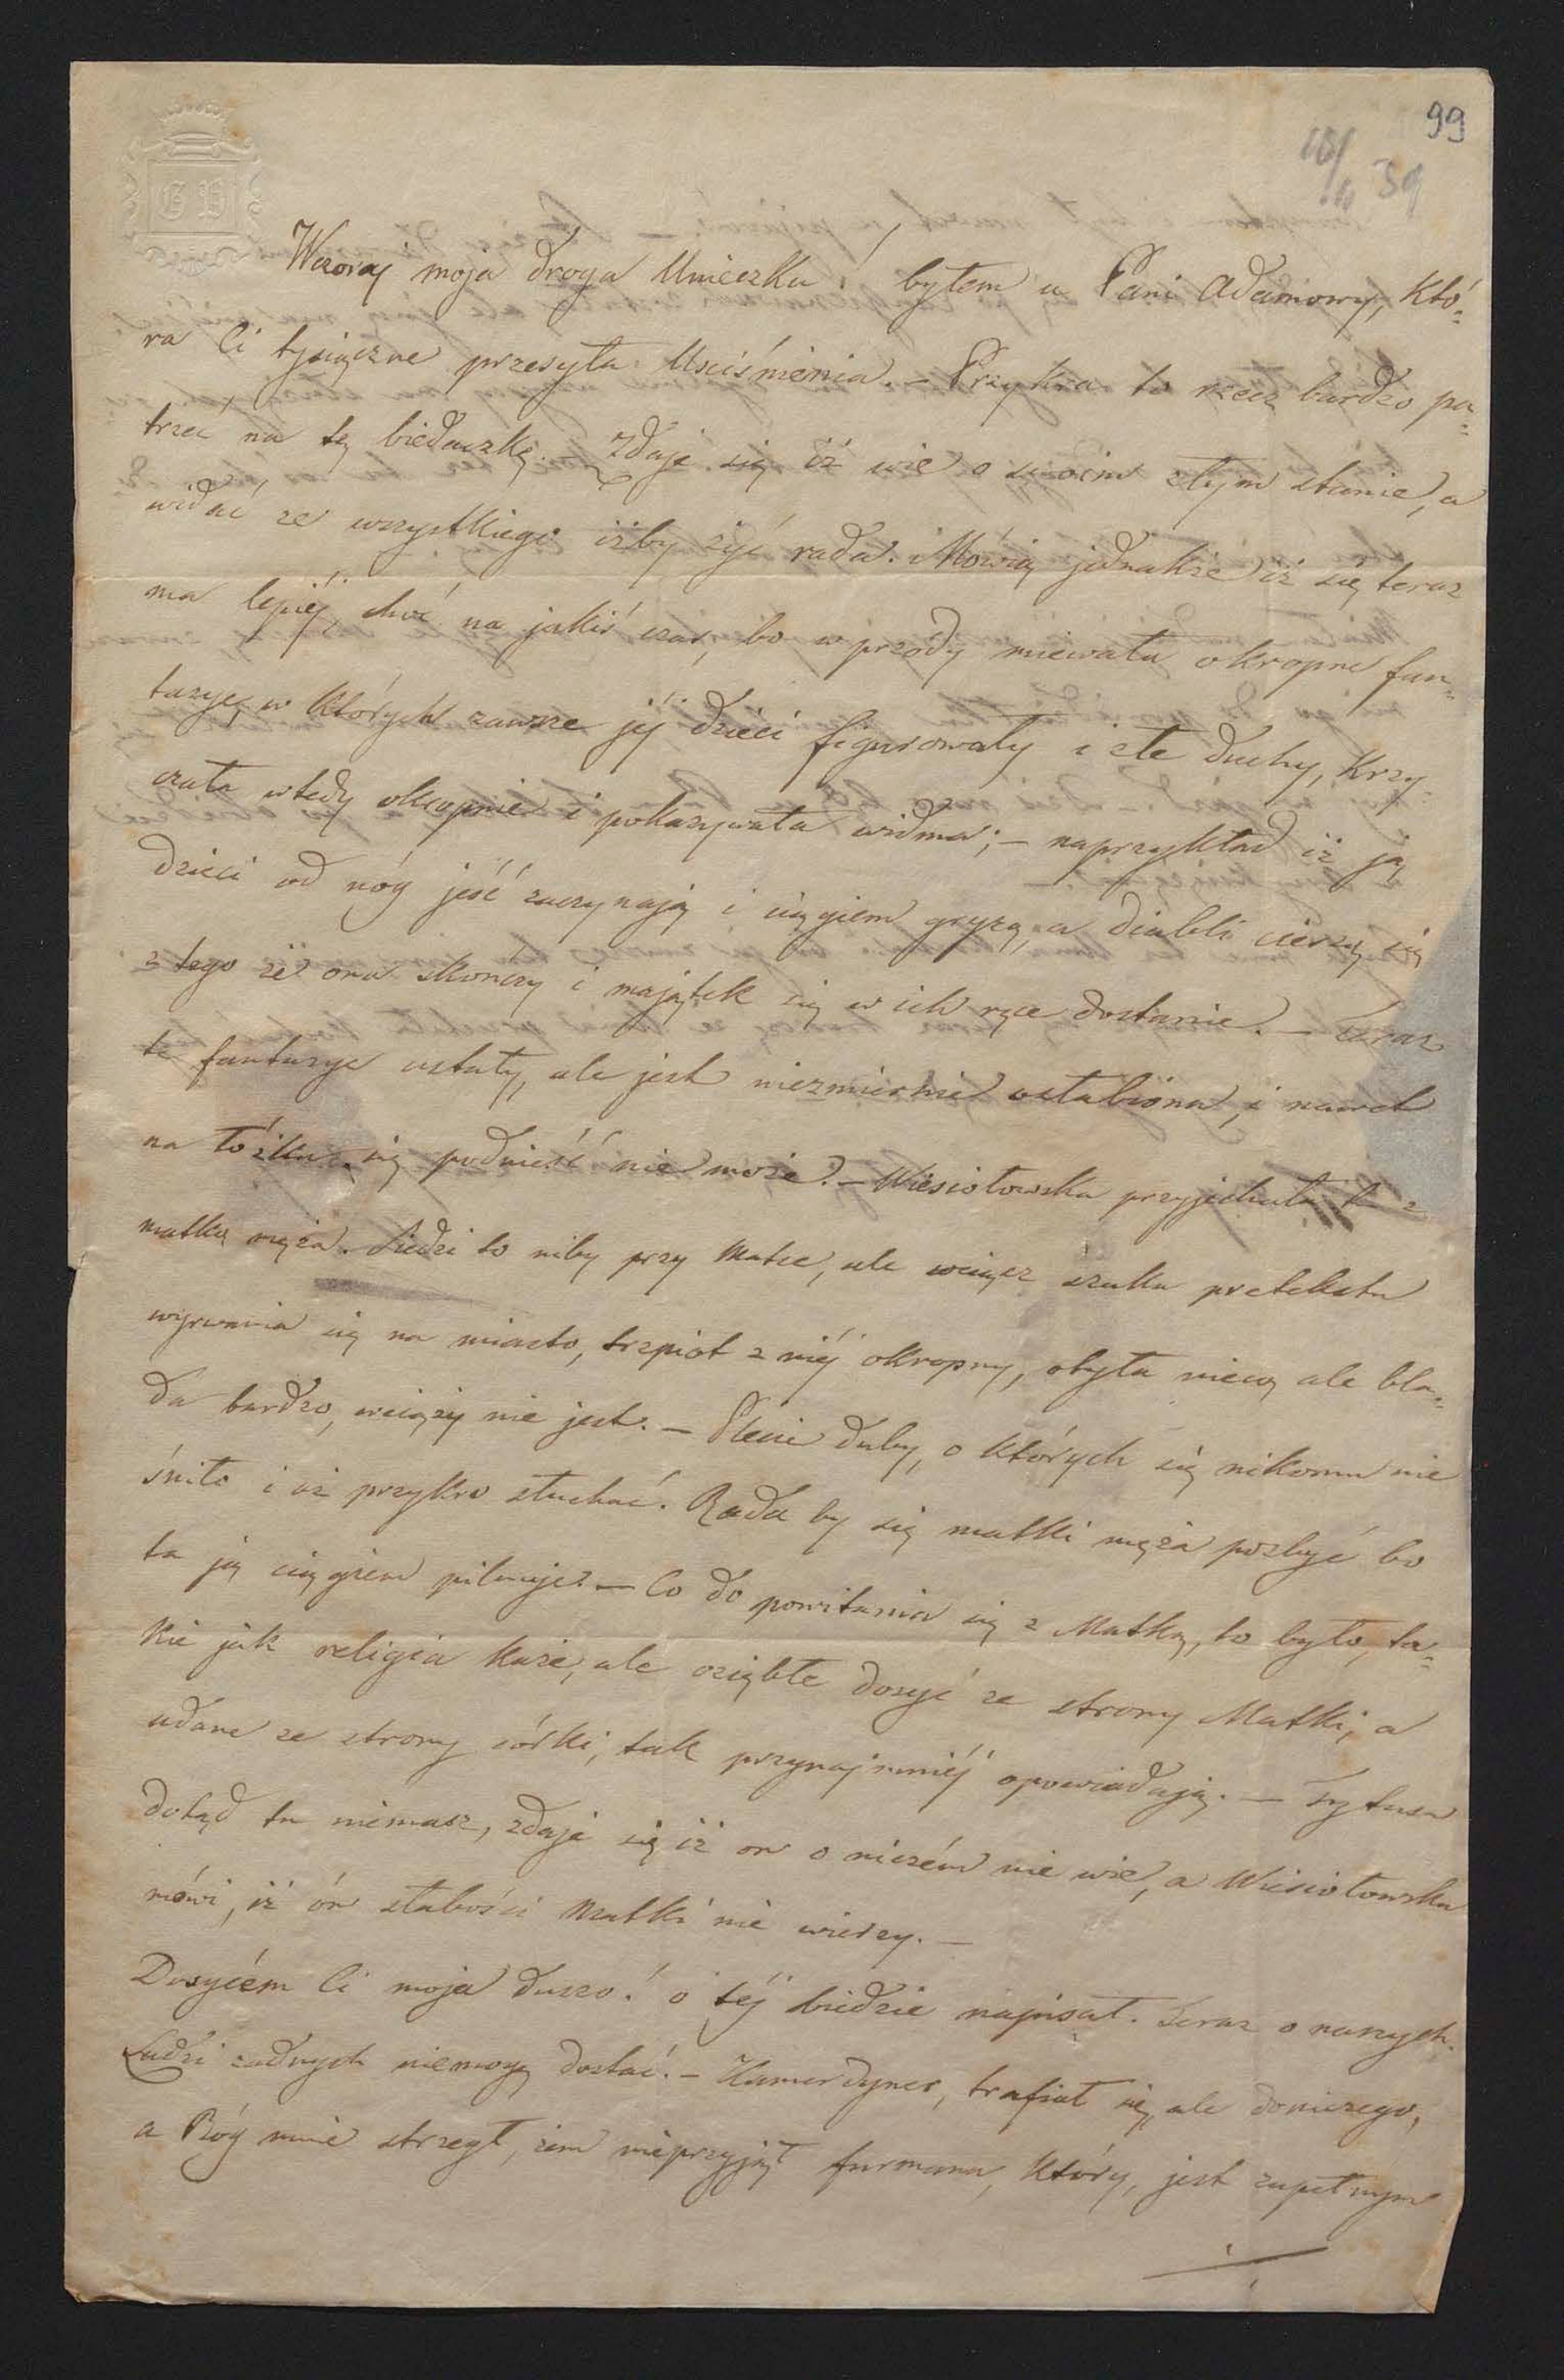 99
10/10 39
G P
Wczoraj moja droga Unieczku! byłem u Pani Adamowy, któ=
ra Ci tysiączne przesyła Uściśnienia. – Przykra to rzecz bardzo pa=
trzeć na tę biedaczkę. – Zdaje się iż wie o swoim złym stanie, a
widać ze wszystkiego iżby żyć rada. Mówią jednakże iż się teraz
ma lepiéj, choć na jakiś czas, bo w przódy miewała okropne fan=
tazye, w których zawsze jéj dzieci figurowały i złe duchy, Krzy=
czała wtedy okropnie i pokazywała widma; – naprzykład iż ją
dzieci od nóg jeść zaczynają i ciągiem gryzą, a diabli cieszą się
z tego że ona skończy i majątek się w ich ręce dostanie. – Teraz
te fantazye ustały, ale jest niezmiernie osłabiona, i nawet
na łóżku się podnieść nie może. – Wiesiołowska przyjechała tu z
matką męża. Siedzi to niby przy Matce, ale wciąż szuka pretekstu
wyrwania się na miasto, trzpiot z niéj okropny, otyła nieco, ale bla=
da bardzo, wciąży nie jest. – Plecie duby, o których się nikomu nie
śniło i aż przykro słuchać. Rada by się matki męża pozbyć bo
ta ją ciągiem pilnuje. – Co do powitania się z Matką, to było, ta=
kie jak religia każe, ale oziębłe dosyć ze strony Matki, a
udane ze strony córki, tak przynajmniéj opowiadają. – Tytusa
dotąd tu niemasz, zdaje się iż on o niczém nie wie, a Wiesiołowska
mówi, iż ón słabości Matki nie wierzy. –
Dosyćem Ci moja duszo! o téj biedzie napisał. Teraz o naszych.
Ludzi żadnych niemogę dostać. – Kamerdyner, trafiał się, ale doniczego,
a Bóg mnie strzegł, żem nieprzyjął furmana, który, jest zupełnym